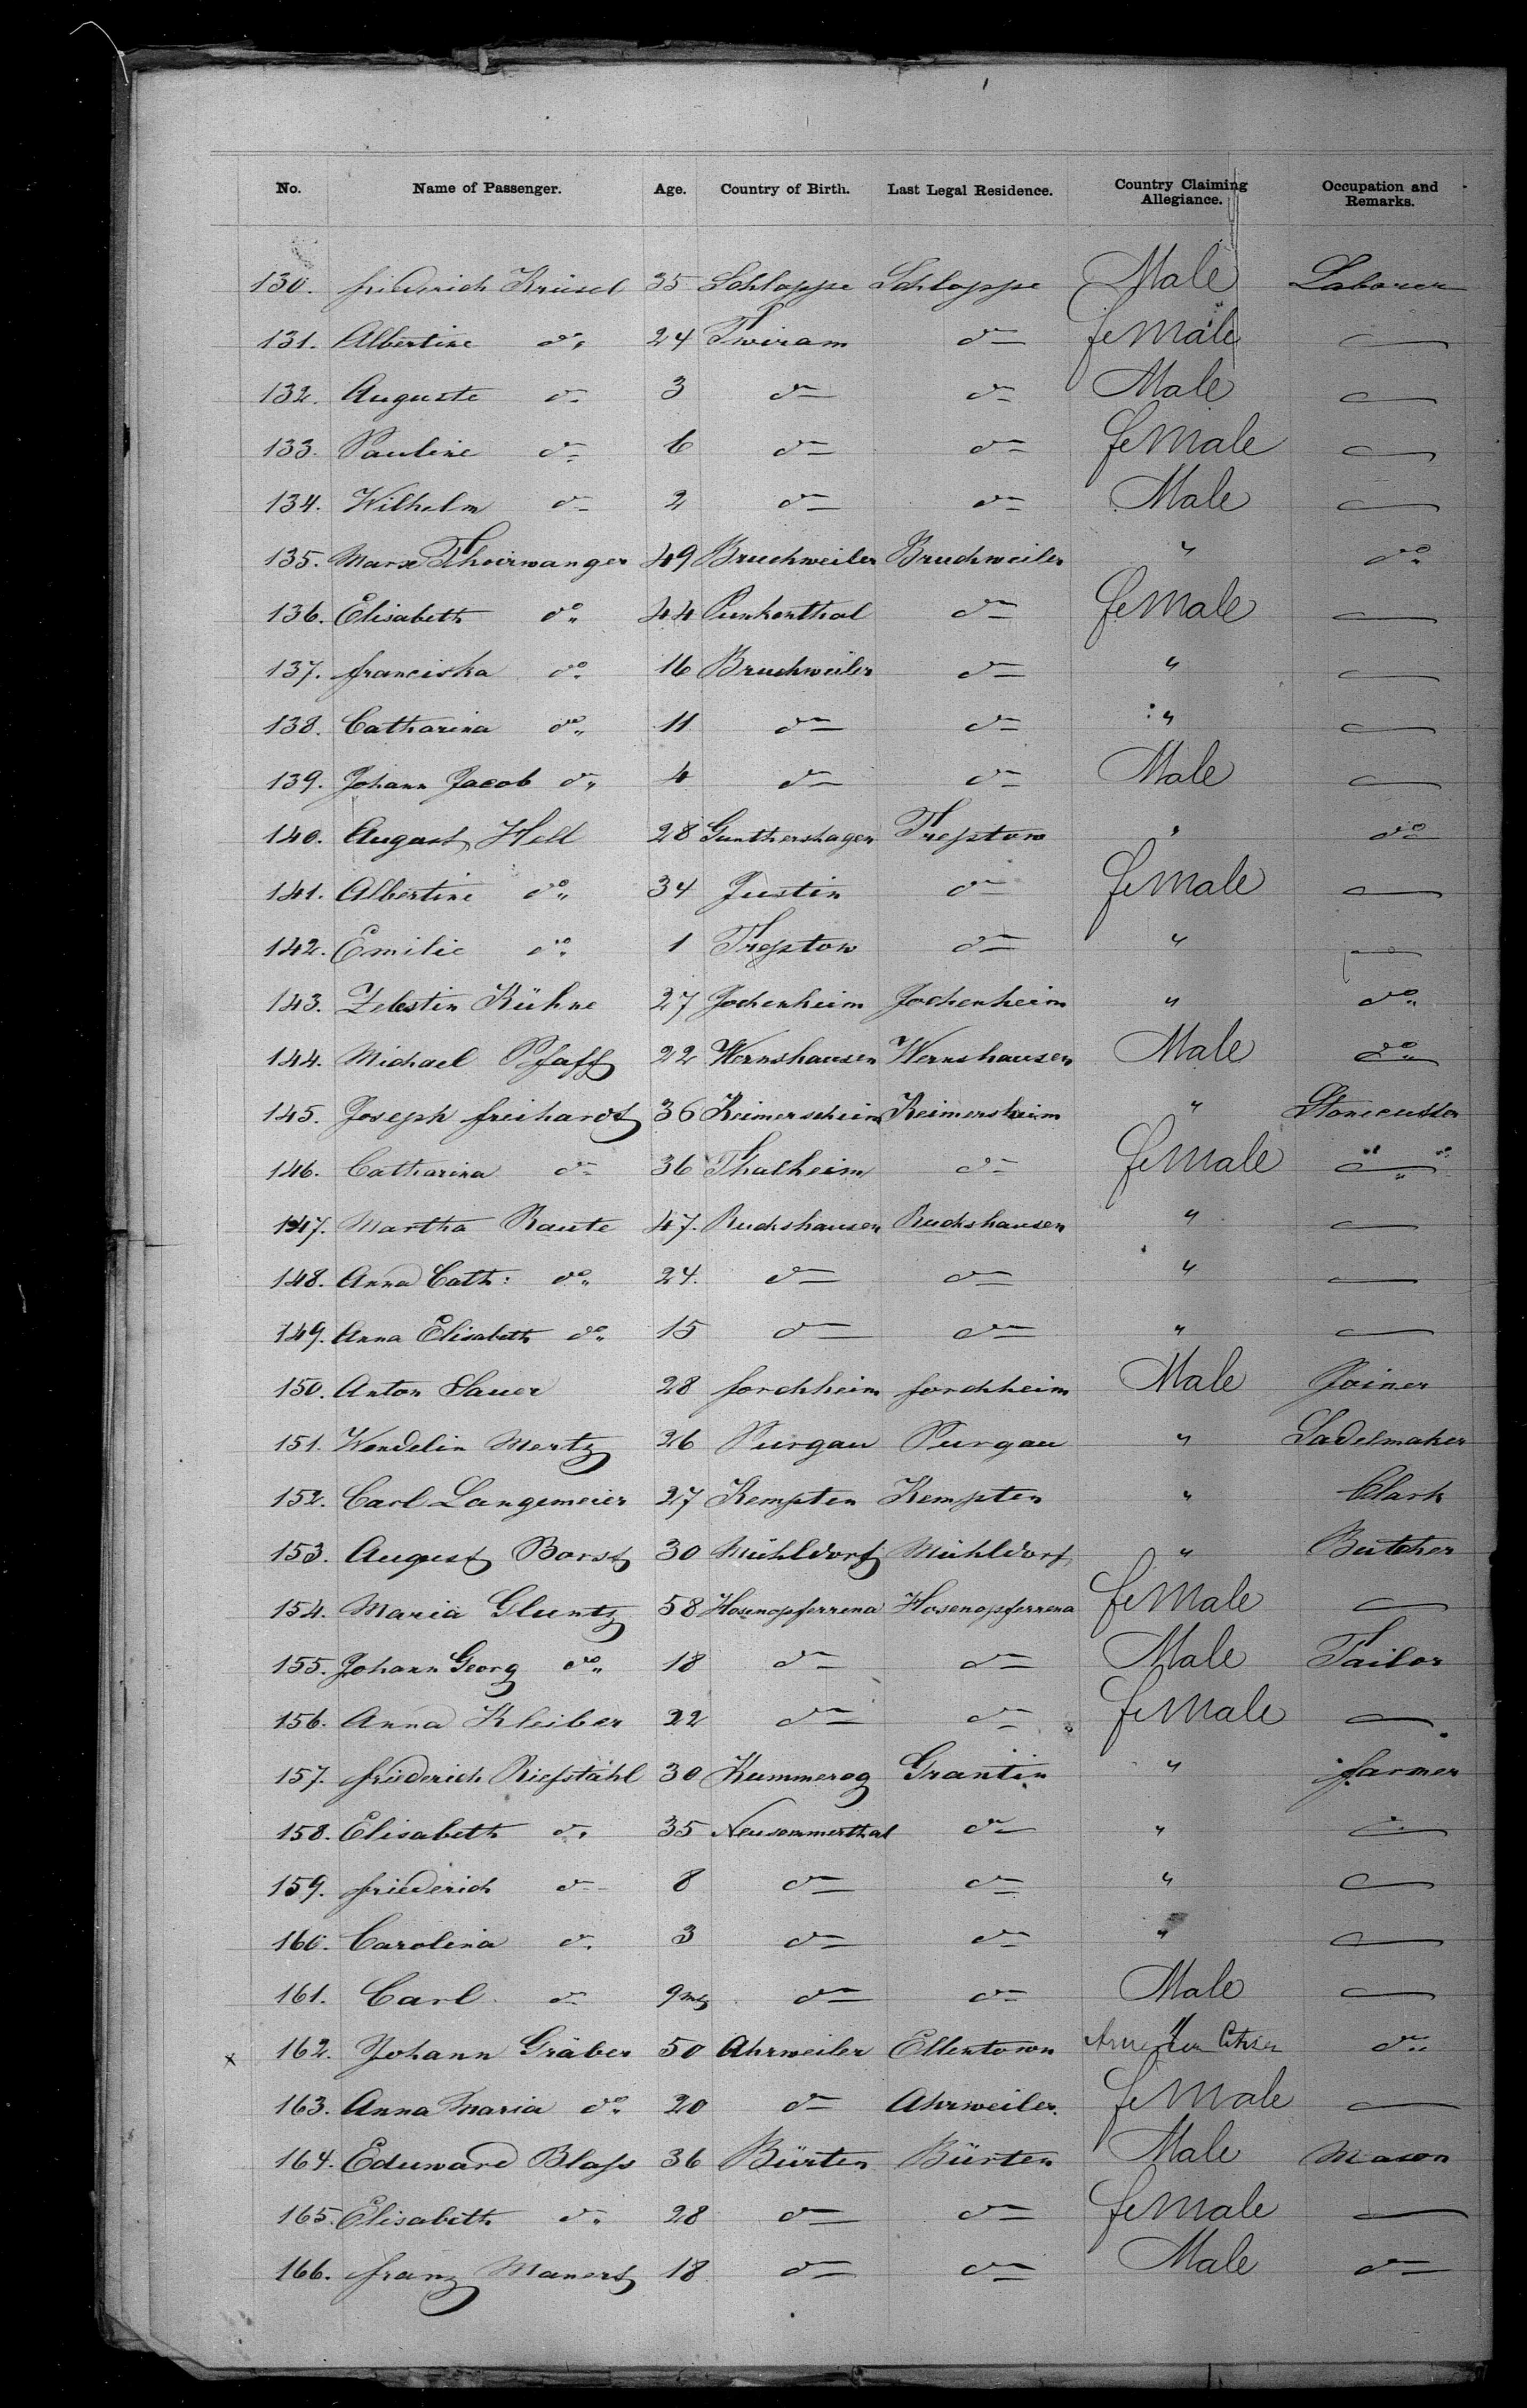 No. Name of Passenger. Age. Country of Birth. Last Legal Residence. Country Claiming Allegiance. Occupation and Remarks.
130. friederich Kriesel 35 Schloppe Schloppe Male Laborer
131. Albertine do 24 Twiram do female —
132. Auguste do 3 do do Male —
133. Pauline do 6 do do female —
134. Wilhelm do 2 do do Male —
135. Marx Thoirwanger 49 Bruchweiler Bruchweiler " do
136. Elisabeth do 44 Punkenthal do female —
137. franciska do 16 Bruchweiler do " —
138. Catharina do 11 do do " —
139. Johann Jacob do 4 do do Male —
140. August Hell 28 Gunthershagen Treptow " do
141. Albertine do 34 Justin do female —
142. Emilie do 1 Treptow do " —
143. Zelestin Kühne 27 Jochenheim Jochenheim " do
144. Michael Pfaff 22 Wernshausen Wernshausen Male do
145. Joseph freihardt 36 Reimersheim Reimersheim " Stonecutter
146. Catharina do 36 Thalheim do female —
147. Martha Raute 47. Ruckshausen Ruckshausen " —
148. Anna Cath: do 24. do do " —
149. Anna Elisabeth do 15 do do " —
150. Anton Sauer 28 forchheim forchheim Male Joiner
151. Wendelin Mertz 26 Purgau Purgau " Sadelmaker
152. Carl Langemeier 27 Kempten Kempten " Clark
153. August Borst 30 Mühldorf Mühldorf " Butcher
154. Maria Gluntz 58 Hosenopferrena Hosenopferrena female —
155. Johann Georg do 18 do do Male Tailor
156. Anna Kleiber 22 do do female —
157. friederich Riefstahl 30 Kummerog Grantin " farmer
158. Elisabeth do 35 Neusommerthal do " —
159. friederich do 8 do do " —
160. Carolina do 3 do do " —
161. Carl do 9 mts do do Male —
x 162. Johann Gräber 50 Ahrweiler Ellentown " do
163. Anna Maria do 20 do Ahrweiler. female —
164. Eduward Blass 36 Bürten Bürten Male Mason
165. Elisabeth do 28 do do female —
166. franz Manert 18 do do Male do